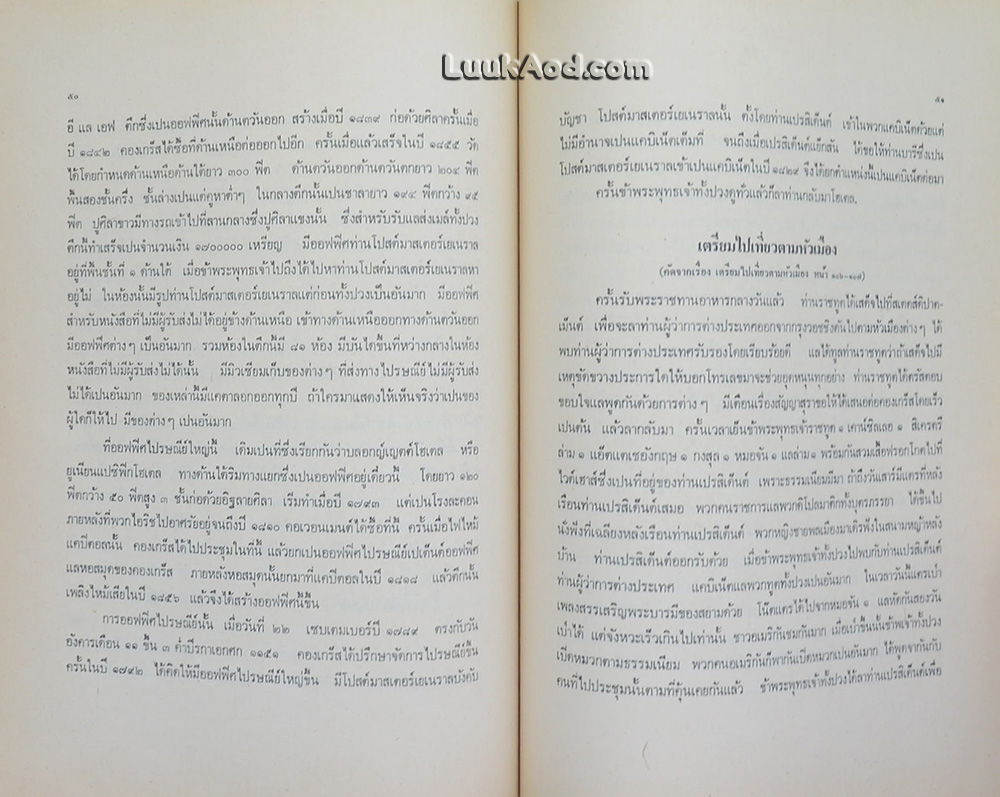 LuukAod.com
๕๐
อี แล เอฟ ตึกซึ่งเปนออฟฟิศนั้นด้านตวันออก สร้างเมื่อปี ๑๘๓๙ ก่อด้วยศิลาครั้นเมื่อ
ปี ๑๘๔๒ คองเกร็สได้ซื้อที่ด้านเหนือต่อออกไปอีก ครั้นเมื่อแล้วเสร็จในปี ๑๘๕๕ วัด
ได้โดยกำหนดด้านเหนือด้านใต้ยาว ๓๐๐ ฟีต ด้านตวันออกด้านตวันตกยาว ๒๐๔ ฟีต
พื้นสองชั้นครึ่ง ชั้นล่างเปนแต่คูหาต่ำๆ ในกลางตึกนั้นเปนชาลายาว ๑๙๔ ฟีตกว้าง ๙๕
ฟีต ปูศิลาขาวมีทางรถเข้าไปที่ลานกลางซึ่งปูศิลาแขงนั้น ซึ่งสำหรับรับแลส่งเมล์ทั้งปวง
ตึกนี้ทำเสร็จเปนจำนวนเงิน ๑๗๐๐๐๐๐ เหรียญ มีออฟฟิศท่านโปสต์มาสเตอร์เยเนราล
อยู่ที่พื้นชั้นที่ ๑ ด้านใต้ เมื่อข้าพระพุทธเจ้าไปถึงได้ไปหาท่านโปสต์มาสเตอร์เยเนราลหา
อยู่ไม่ ในห้องนั้นมีรูปท่านโปสต์มาสเตอร์เยเนราลแต่ก่อนทั้งปวงเป็นอันมาก มีออฟฟิศ
สำหรับหนังสือที่ไม่มีผู้รับส่งไม่ได้อยู่ข้างด้านเหนือ เข้าทางด้านเหนือออกทางด้านตวันออก
มีออฟฟิศต่างๆ เป็นอันมาก รวมห้องในตึกนี้มี ๘๑ ห้อง มีบันไดขึ้นที่หว่างกลางในห้อง
หนังสือที่ไม่มีผู้รับส่งไม่ได้นั้น มีมิวเซียมเก็บของต่างๆ ที่ส่งทางไปรษณีย์ไม่มีผู้รับส่ง
ไม่ได้เปนอันมาก ของเหล่านี้มีแคตาลอกออกทุกปี ถ้าใครมาแสดงให้เห็นจริงว่าเปนของ
ผู้ใดก็ให้ไป มีของต่างๆ เปนอันมาก
ที่ออฟฟิศไปรษณีย์ใหญ่นี้ เดิมเปนที่ซึ่งเรียกกันว่าบลอกญ์เญตต์โฮเตล หรือ
ยูเนียนแปซิฟิกโฮเตล ทางด้านใต้ริมทางแยกซึ่งเปนออฟฟิศอยู่เดี๋ยวนี้ โดยยาว ๑๒๐
ฟีตกว้าง ๕๐ ฟีตสูง ๓ ชั้นก่อด้วยอิฐลายศิลา เริ่มทำเมื่อปี ๑๗๙๓ แต่เปนโรงละคอน
ภายหลังที่พวกไอริชไปอาศรัยอยู่จนถึงปี ๑๘๑๐ คอเวอนเมนต์ได้ซื้อที่นี้ ครั้นเมื่อไฟไหม้
แคปิตอลนั้น คองเกร็สได้ไปประชุมในที่นี้ แล้วยกเปนออฟฟิศไปรษณีย์เปเต็นต์ออฟฟิศ
แลหอสมุดของคองเกร็ส ภายหลังหอสมุดนั้นยกมาที่แคปิตอลในปี ๑๘๑๘ แล้วตึกนั้น
เพลิงไหม้เสียในปี ๑๘๕๖ แล้วจึงได้สร้างออฟฟิศนี้ขึ้น
การออฟฟิศไปรษณีย์นั้น เมื่อวันที่ ๒๒ เซบเตมเบอร์ปี ๑๗๘๙ ตรงกับวัน
อังคารเดือน ๑๑ ขึ้น ๓ ค่ำปีรกาเอกศก ๑๑๕๑ คองเกร็สได้ปรึกษาจัดการไปรษณีย์ขึ้น
ครั้นในปี ๑๗๙๒ ได้คิดให้มีออฟฟิศไปรษณีย์ใหญ่ขึ้น มีโปสต์มาสเตอร์เยเนราลบังคับ
๕๑
บัญชา โปสต์มาสเตอร์เยเนราลนั้น ตั้งโดยท่านเปรสิเด็นต์ เข้าในพวกแคบิเน็ตด้วยแต่
ไม่มีอำนาจเปนแคบิเน็ตเต็มที่ จนถึงเมื่อเปรสิเด็นต์แยกสัน ได้ขอให้ท่านบารีซึ่งเปน
โปสต์มาสเตอร์เยเนราลเข้าเปนแคบิเน็ตในปี ๑๘๒๙ จึงได้ยกตำแหน่งนี้เปนแคบิเน็ตต่อมา
ครั้นข้าพระพุทธเจ้าทั้งปวงดูทั่วแล้วก็ลาท่านกลับมาโฮเตล.
เตรียมไปเที่ยวตามหัวเมือง
(คัดจากเรื่อง เตรียมไปเที่ยวตามหัวเมือง หน้า ๑๐๖–๑๐๗)
ครั้นรับพระราชทานอาหารกลางวันแล้ว ท่านราชทูตได้เสด็จไปที่สเตตส์ดิปาต-
เม็นต์ เพื่อจะลาท่านผู้ว่าการต่างประเทศออกจากกรุงวอชชิงตันไปตามหัวเมืองต่างๆ ได้
พบท่านผู้ว่าการต่างประเทศรับรองโดยเรียบร้อยดี แลได้ทูลท่านราชทูตว่าถ้าเสด็จไปมี
เหตุขัดขวางประการใดให้บอกโทรเลขมาจะช่วยอุดหนุนทุกอย่าง ท่านราชทูตได้ตรัสตอบ
ขอบใจแลพูดกันด้วยการต่างๆ มีเตือนเรื่องสัญญาสุราขอให้ได้เสนอต่อคองเกร็สโดยเร็ว
เปนต้น แล้วลากลับมา ครั้นเวลาเย็นข้าพระพุทธเจ้าราชทูต ๑ เคาน์ซิลเลอ ๑ สิเครตรี
ล่าม ๑ แอ็ดแตเชอังกฤษ ๑ กงสุล ๑ หมอจัน ๑ แลถ่าม ๑ พร้อมกันสวมเสื้อฟรอกโกตไปที่
ไวต์เฮาส์ซึ่งเปนที่อยู่ของท่านเปรสิเด็นต์ เพราะธรรมเนียมมีมา ถ้าถึงวันเสาร์มีแตรที่หลัง
เรือนท่านเปรสิเด็นต์เสมอ พวกคนราชการแลพวกดิโปลมาติกทั้งบุตรภรรยา ได้ขึ้นไป
นั่งฟังที่เฉลียงหลังเรือนท่านเปรสิเด็นต์ พวกหญิงชายพลเมืองมาเดิรฟังในสนามหญ้าหลัง
บ้าน ท่านเปรสิเด็นต์ออกรับด้วย เมื่อข้าพระพุทธเจ้าทั้งปวงไปพบกับท่านเปรสิเด็นต์
ท่านผู้ว่าการต่างประเทศ แคบิเน็ตแลพวกทูตทั้งปวงเปนอันมาก ในเวลาวันนี้แตรเป่า
เพลงสรรเสริญพระบารมีของสยามด้วย โน๊ตแตรได้ไปจากหมอจัน ๑ แลหัดกันสองวัน
เป่าได้ แต่จังหวะเร็วเกินไปเท่านั้น ชาวอเมริกันชมกันมาก เมื่อเป่าขึ้นนั้นข้าพเจ้าทั้งปวง
เปิดหมวกตามธรรมเนียม พวกคนอเมริกันก็พากันเปิดหมวกเปนอันมาก ได้พูดจากันกับ
คนที่ไปประชุมนั้นตามที่คุ้นเคยกันแล้ว ข้าพระพุทธเจ้าทั้งปวงได้ลาท่านเปรสิเด็นต์เพื่อ